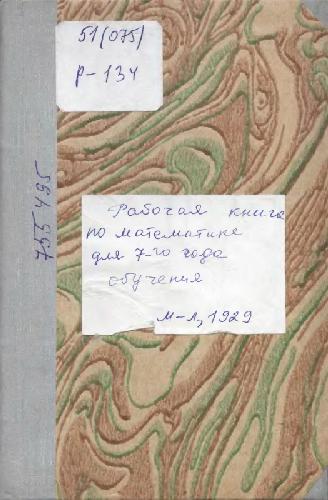 51(075)
р-134
755495
Рабочая книга
по математике
для 7-го года
обучения
М-Л, 1929